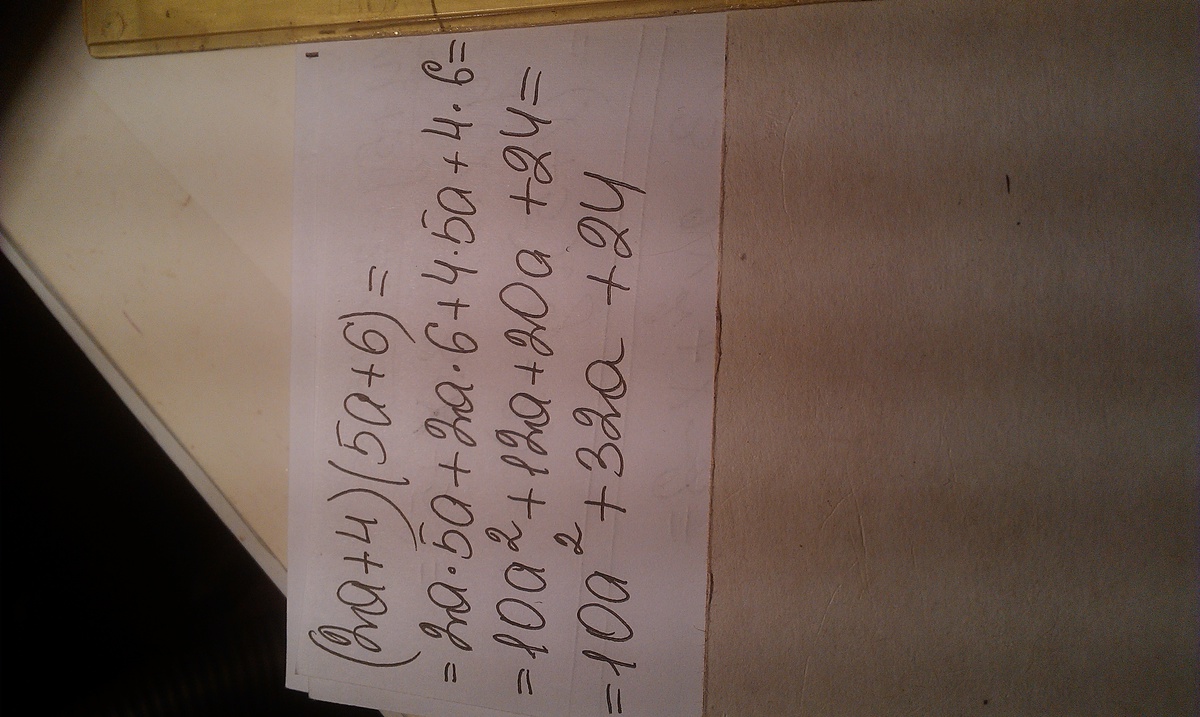 (2a+4)(5a+6)=
=2a·5a+2a·6+4·5a+4·6=
=10a²+12a+20a+24=
=10a²+32a+24